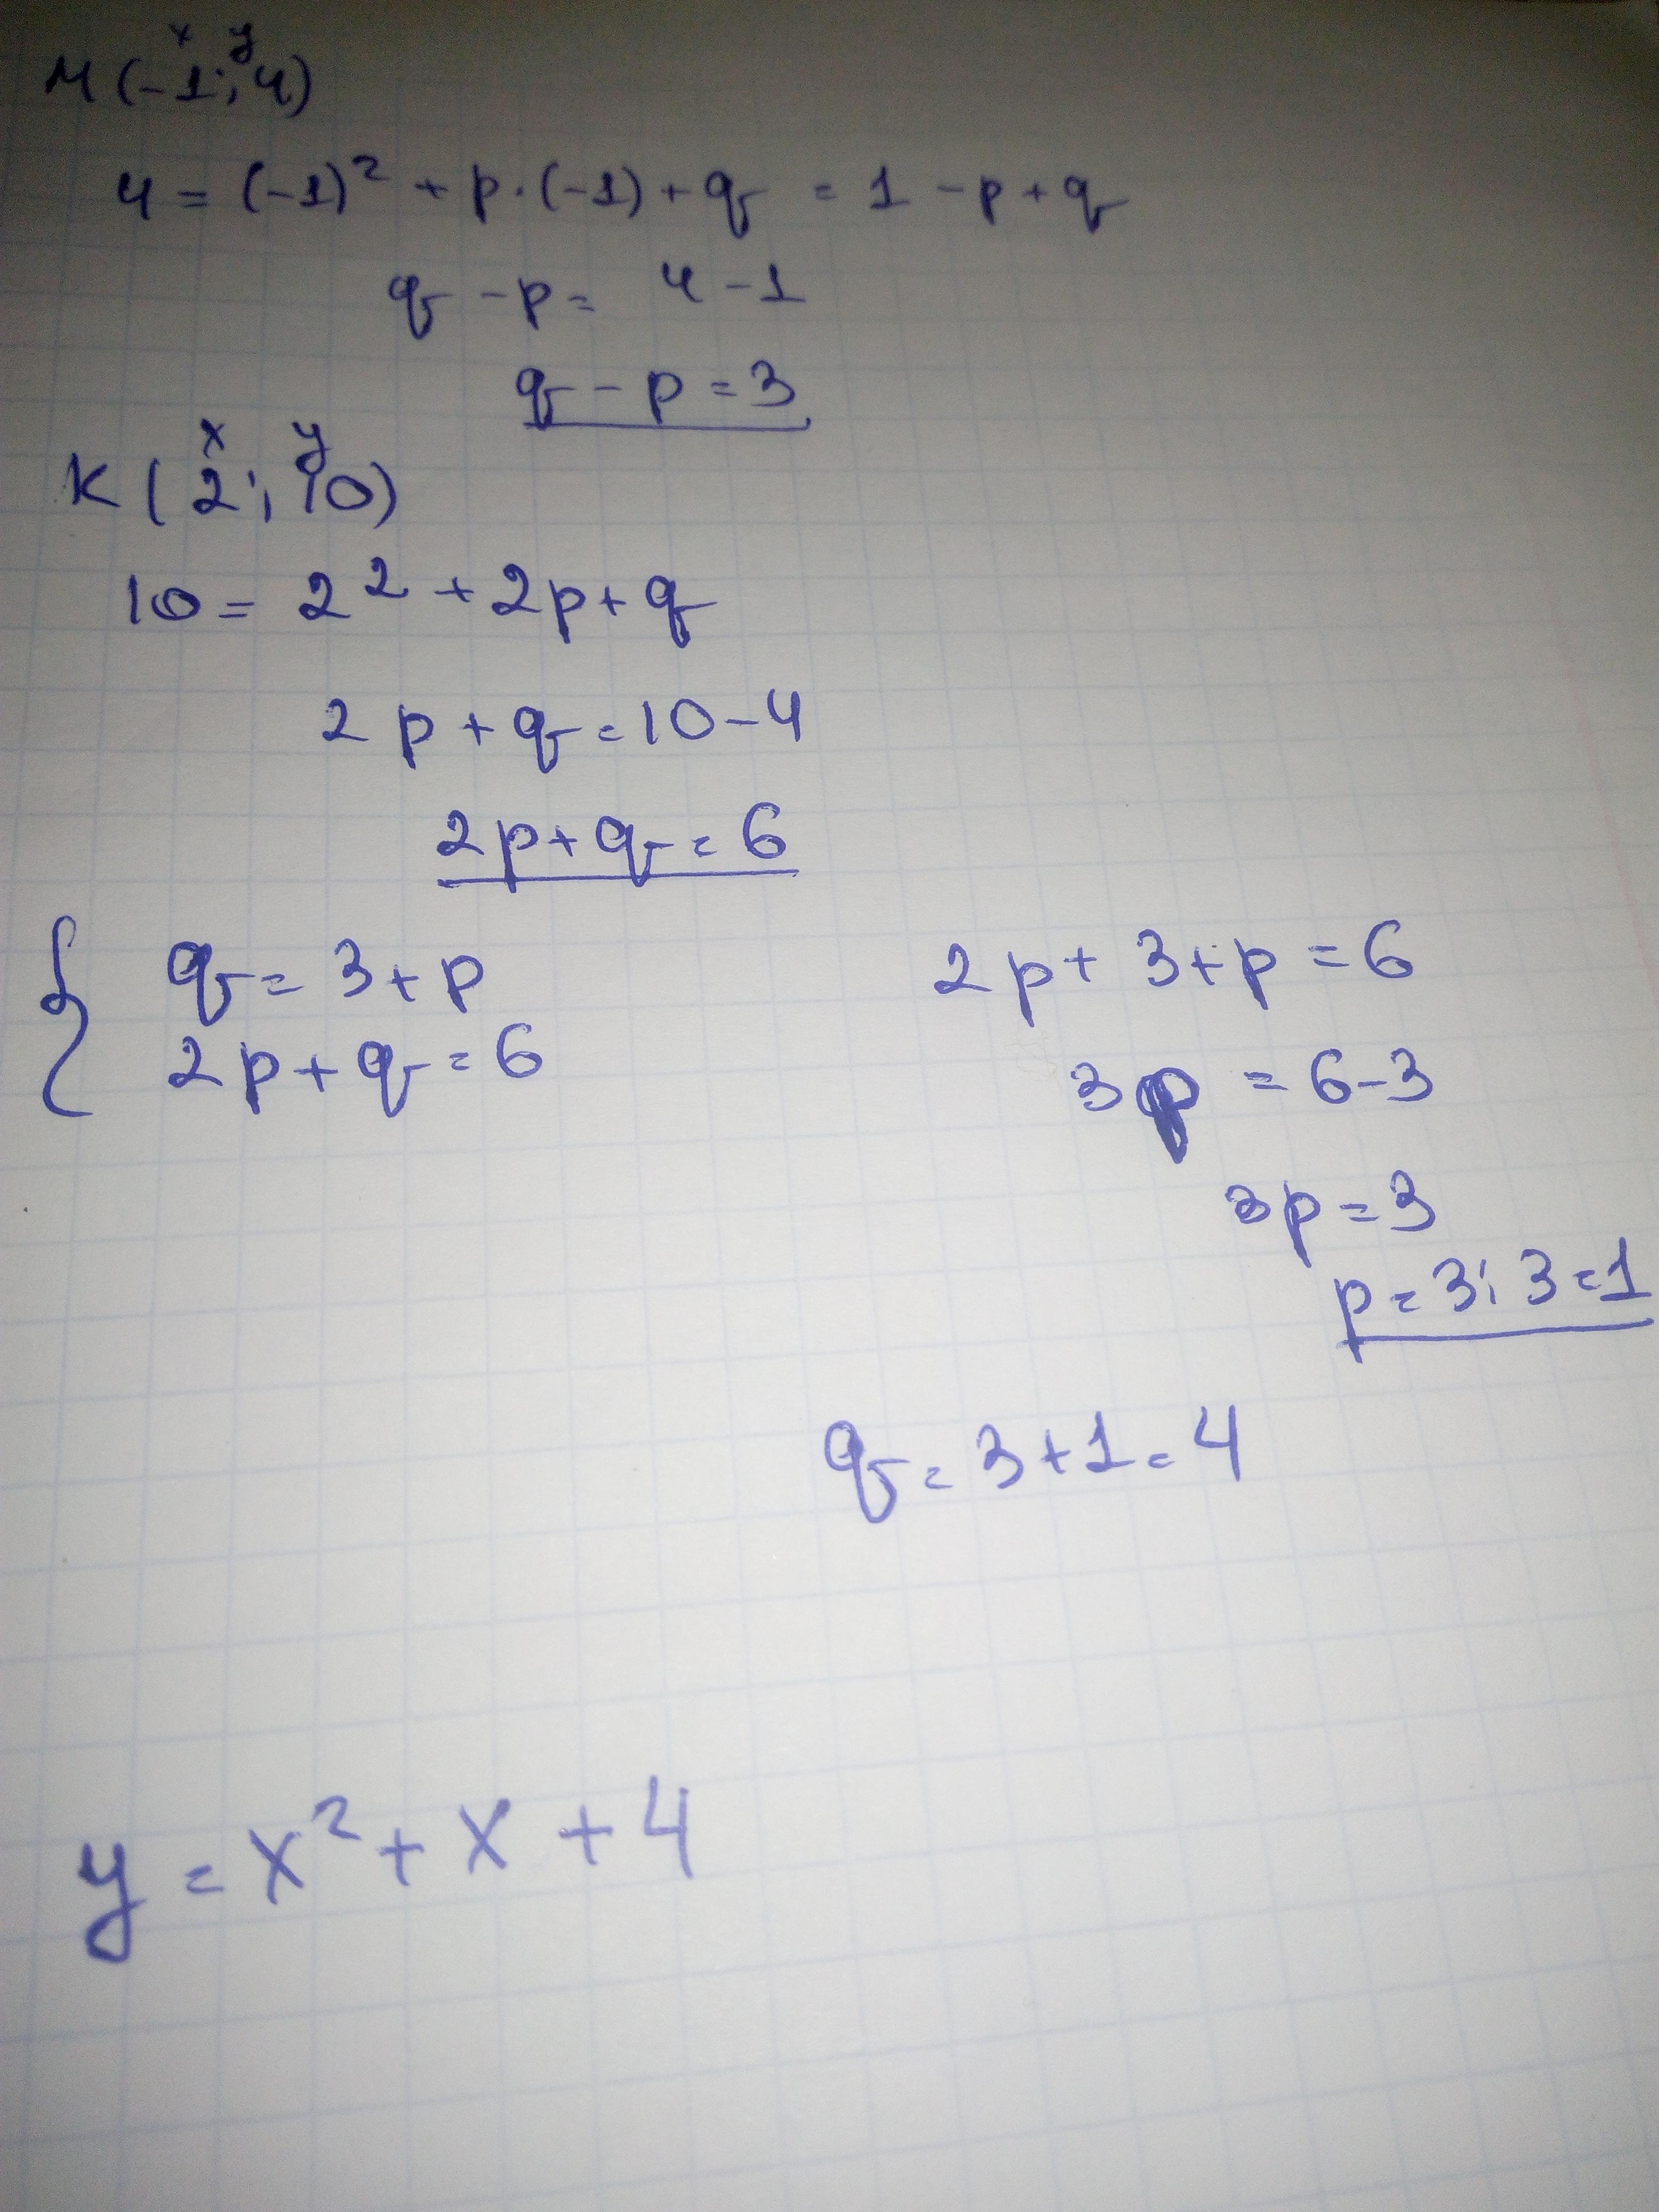 x y
M(-1; 4)
4 = (-1)² + p·(-1) + q = 1 - p + q
q - p = 4 - 1
q - p = 3
x y
K(2; 10)
10 = 2² + 2p + q
2p + q = 10 - 4
2p + q = 6
{ q = 3 + p
2p + q = 6
2p + 3 + p = 6
3p = 6 - 3
3p = 3
p = 3 : 3 = 1
q = 3 + 1 = 4
y = x² + x + 4